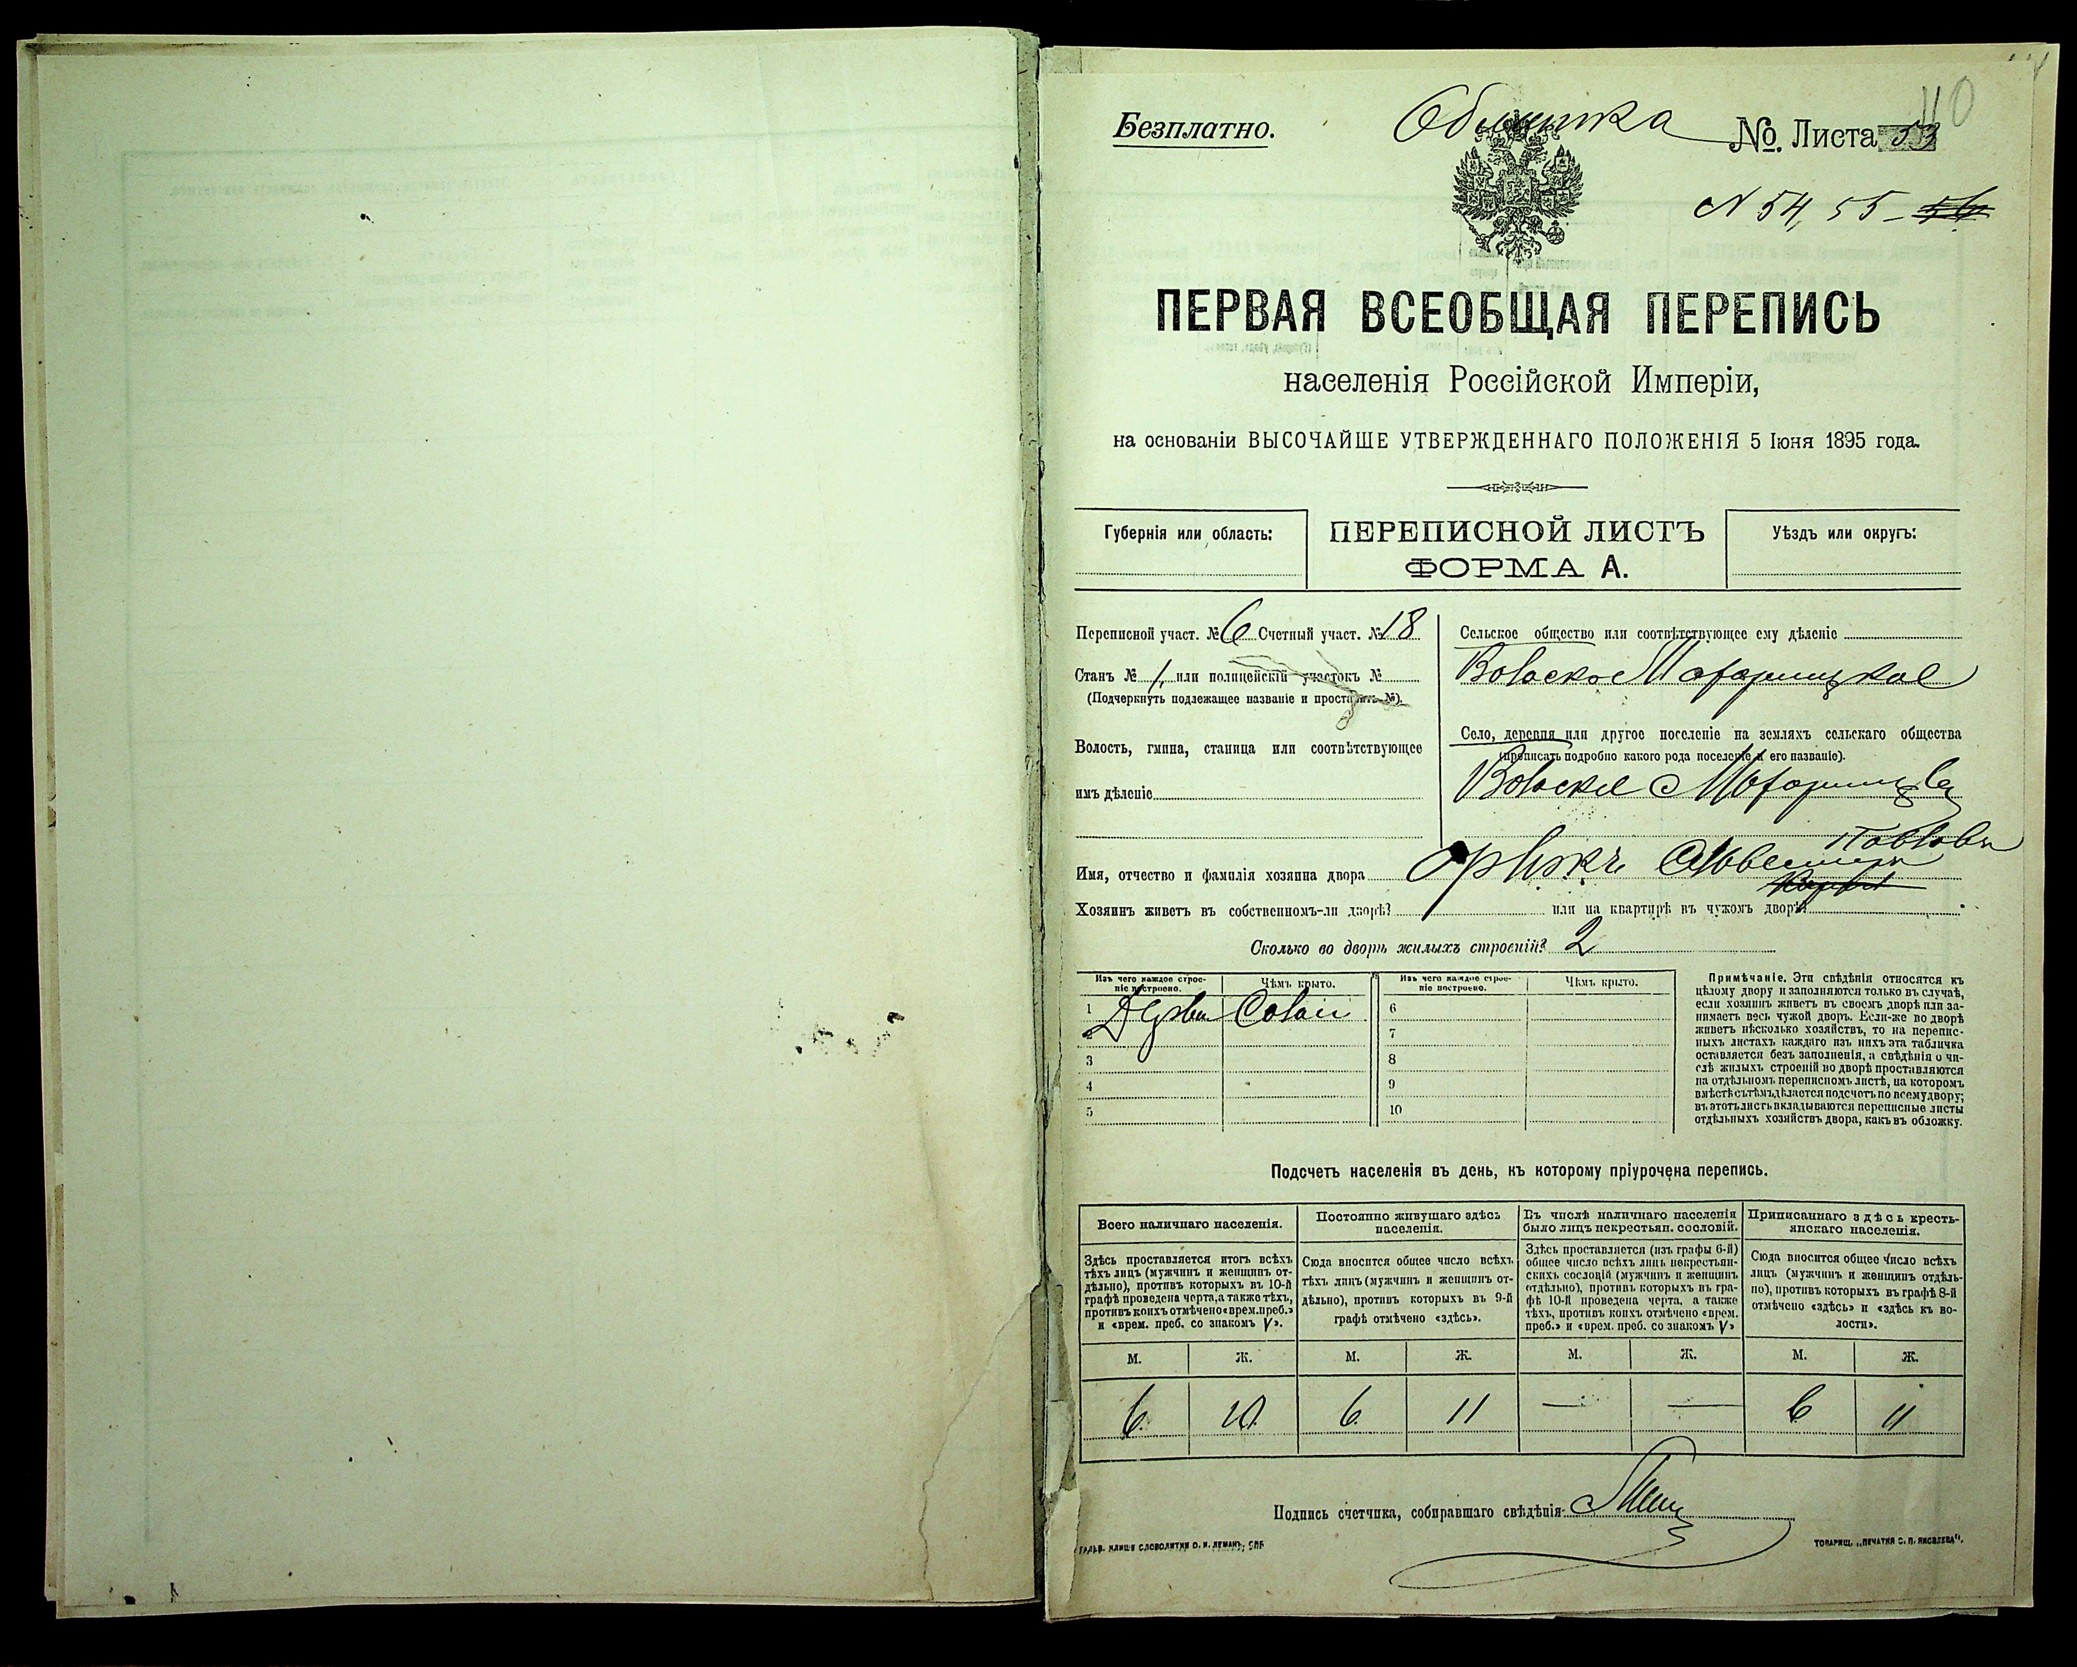 Безплатно.
Обложка
№. Листа 53
40
N 54, 55 - 56
ПЕРВАЯ ВСЕОБЩАЯ ПЕРЕПИСЬ
населенія Россійской Имперіи,
на основаніи ВЫСОЧАЙШЕ УТВЕРЖДЕННАГО ПОЛОЖЕНІЯ 5 Іюня 1895 года.
Губернія или область:
ПЕРЕПИСНОЙ ЛИСТЪ
ФОРМА А.
Уѣздъ или округъ:
Переписной участ. № 6 Счетный участ. № 18
Станъ № 1, или полицейскій участокъ №
(Подчеркнуть подлежащее названіе и проставить №).
Волость, гмина, станица или соотвѣтствующее
имъ дѣленіе
Сельское общество или соотвѣтствующее ему дѣленіе
Село, деревня или другое поселеніе на земляхъ сельскаго общества
(прописать подробно какого рода поселеніе и его названіе).
Имя, отчество и фамилія хозяина двора
Хозяинъ живетъ въ собственномъ-ли дворѣ? или на квартирѣ въ чужомъ дворѣ?
Сколько во дворѣ жилыхъ строеній? 2
Изъ чего каждое строеніе построено.
Чѣмъ крыто.
Изъ чего каждое строеніе построено.
Чѣмъ крыто.
1
2
3
4
5
6
7
8
9
10
Примѣчаніе. Эти свѣдѣнія относятся къ
цѣлому двору и заполняются только въ случаѣ,
если хозяинъ живетъ въ своемъ дворѣ или за-
нимаетъ весь чужой дворъ. Если-же во дворѣ
живетъ нѣсколько хозяйствъ, то на перепис-
ныхъ листахъ каждаго изъ нихъ эта табличка
оставляется безъ заполненія, а свѣдѣнія о чи-
слѣ жилыхъ строеній во дворѣ проставляются
на отдѣльномъ переписномъ листѣ, на которомъ
вмѣстѣ съ тѣмъ дѣлается подсчетъ по всему двору;
въ этотъ листъ вкладываются переписные листы
отдѣльныхъ хозяйствъ двора, какъ въ обложку.
Подсчетъ населенія въ день, къ которому пріурочена перепись.
Всего наличнаго населенія.
Здѣсь проставляется итогъ всѣхъ
тѣхъ лицъ (мужчинъ и женщинъ от-
дѣльно), противъ которыхъ въ 10-й
графѣ проведена черта, а также тѣхъ,
противъ коихъ отмѣчено «врем. преб.»
и «врем. преб. со знакомъ V».
Постоянно живущаго здѣсь
населенія.
Сюда вносится общее число всѣхъ
тѣхъ лицъ (мужчинъ и женщинъ от-
дѣльно), противъ которыхъ въ 9-й
графѣ отмѣчено «здѣсь».
Въ числѣ наличнаго населенія
было лицъ некрестьян. сословій.
Здѣсь проставляется (изъ графы 6-й)
общее число всѣхъ лицъ некрестьян-
скихъ сословій (мужчинъ и женщинъ
отдѣльно), противъ которыхъ въ гра-
фѣ 10-й проведена черта, а также
тѣхъ, противъ коихъ отмѣчено «врем.
преб.» и «врем. преб. со знакомъ V»
Приписаннаго здѣсь кресть-
янскаго населенія.
Сюда вносится общее число всѣхъ
лицъ (мужчинъ и женщинъ отдѣль-
но), противъ которыхъ въ графѣ 8-й
отмѣчено «здѣсь» и «здѣсь къ во-
лости».
М. Ж. М. Ж. М. Ж. М. Ж.
6 10 6 11 — — 6 11
Подпись счетчика, собиравшаго свѣдѣнія
ТОВАРИЩ. „ПЕЧАТНЯ С. П. ЯКОВЛЕВА“.